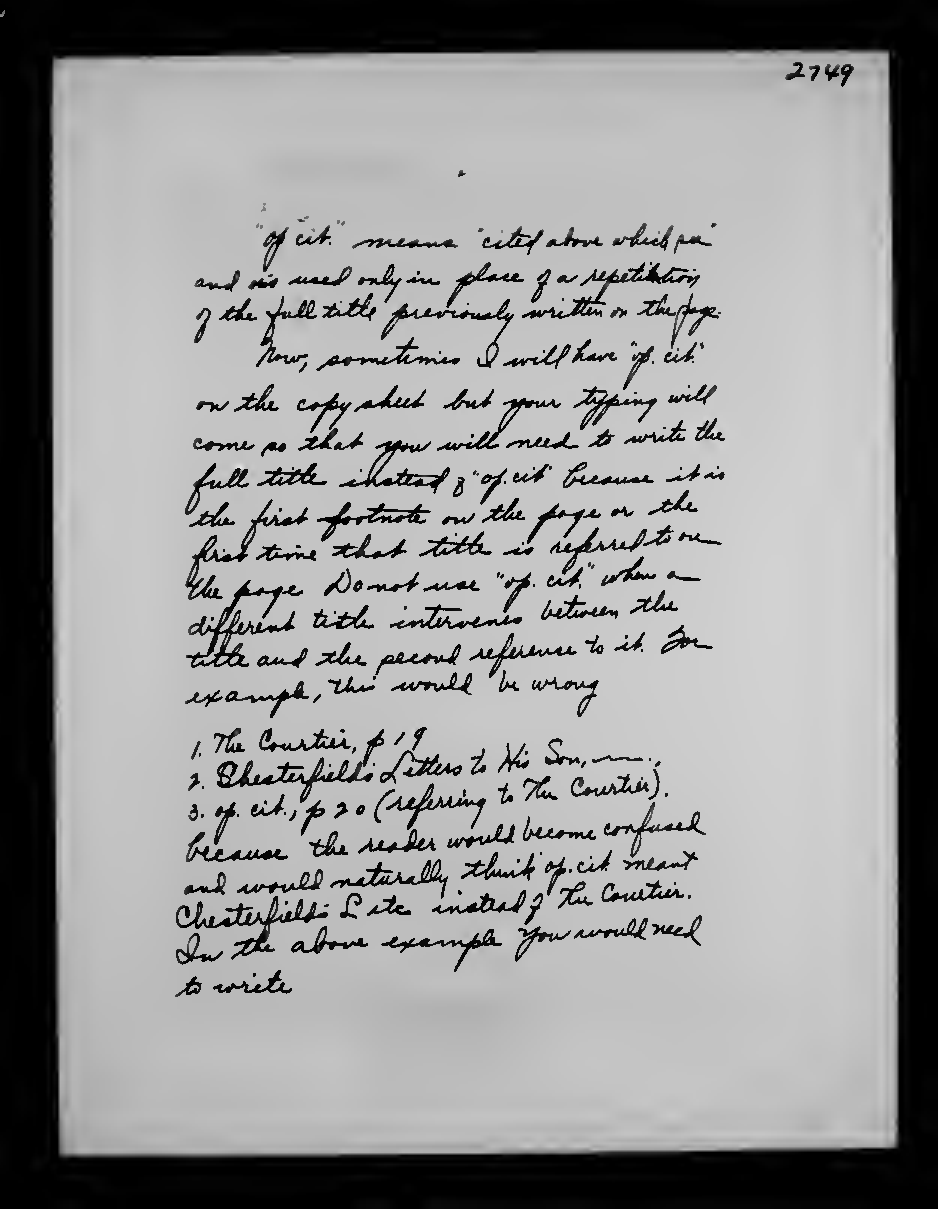 2749
"op cit." means "cited above which see"
and is used only in place of a repetition
of the full title previously written on the page.
Now, sometimes I will have "op. cit."
on the copy sheet but your typing will
come so that you will need to write the
full title instead of "op. cit" because it is
the first footnote on the page or the
first time that title is referred to on
the page. Do not use "op. cit." when a
different title intervenes between the
title and the second reference to it. For
example, this would be wrong
1. The Courtier, p 19
2. Chesterfield's Letters to His Son, ——.,
3. op. cit., p 20 (referring to The Courtier).
because the reader would become confused
and would naturally think op. cit. meant
Chesterfield's L etc instead of The Courtier.
In the above example you would need
to write